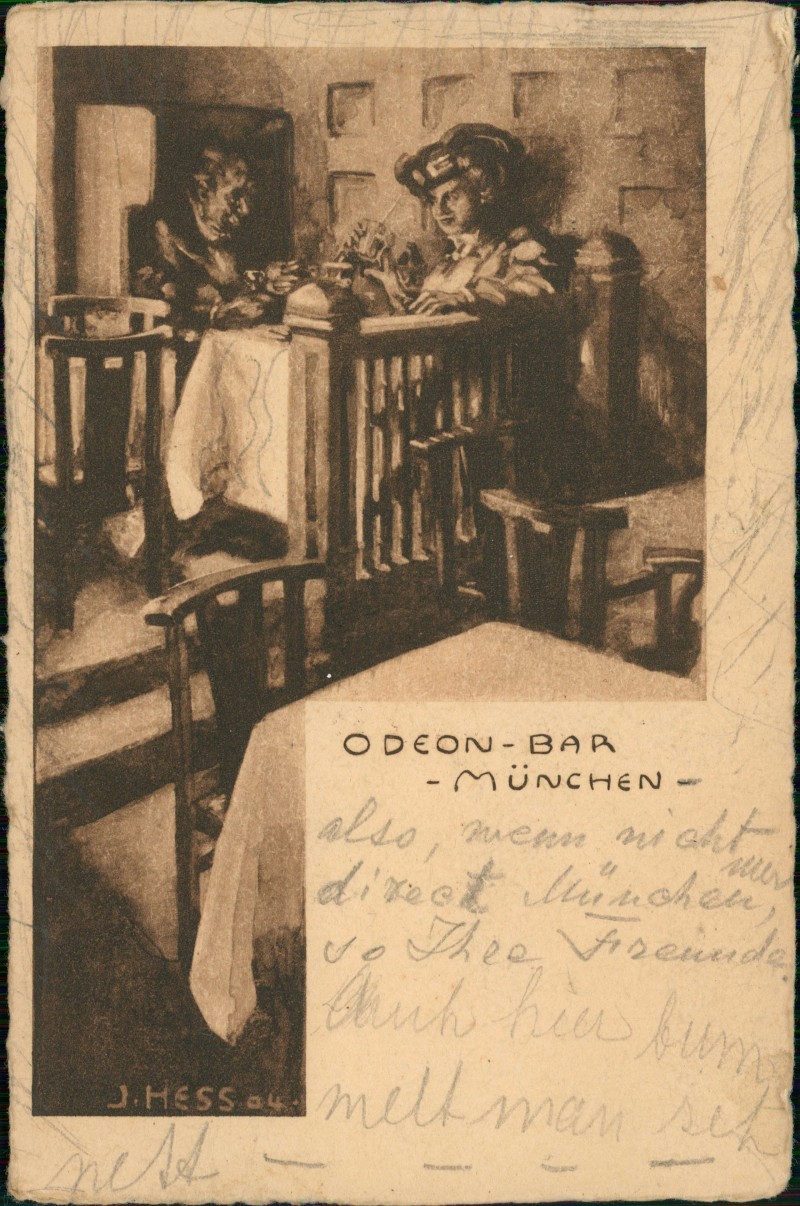 ODEON-BAR
-MÜNCHEN-
also, wenn nicht
direct München, nur
so Ihre Freunde.
Auch hier bum
melt man seh
nett - - - -
J. HESS 04.